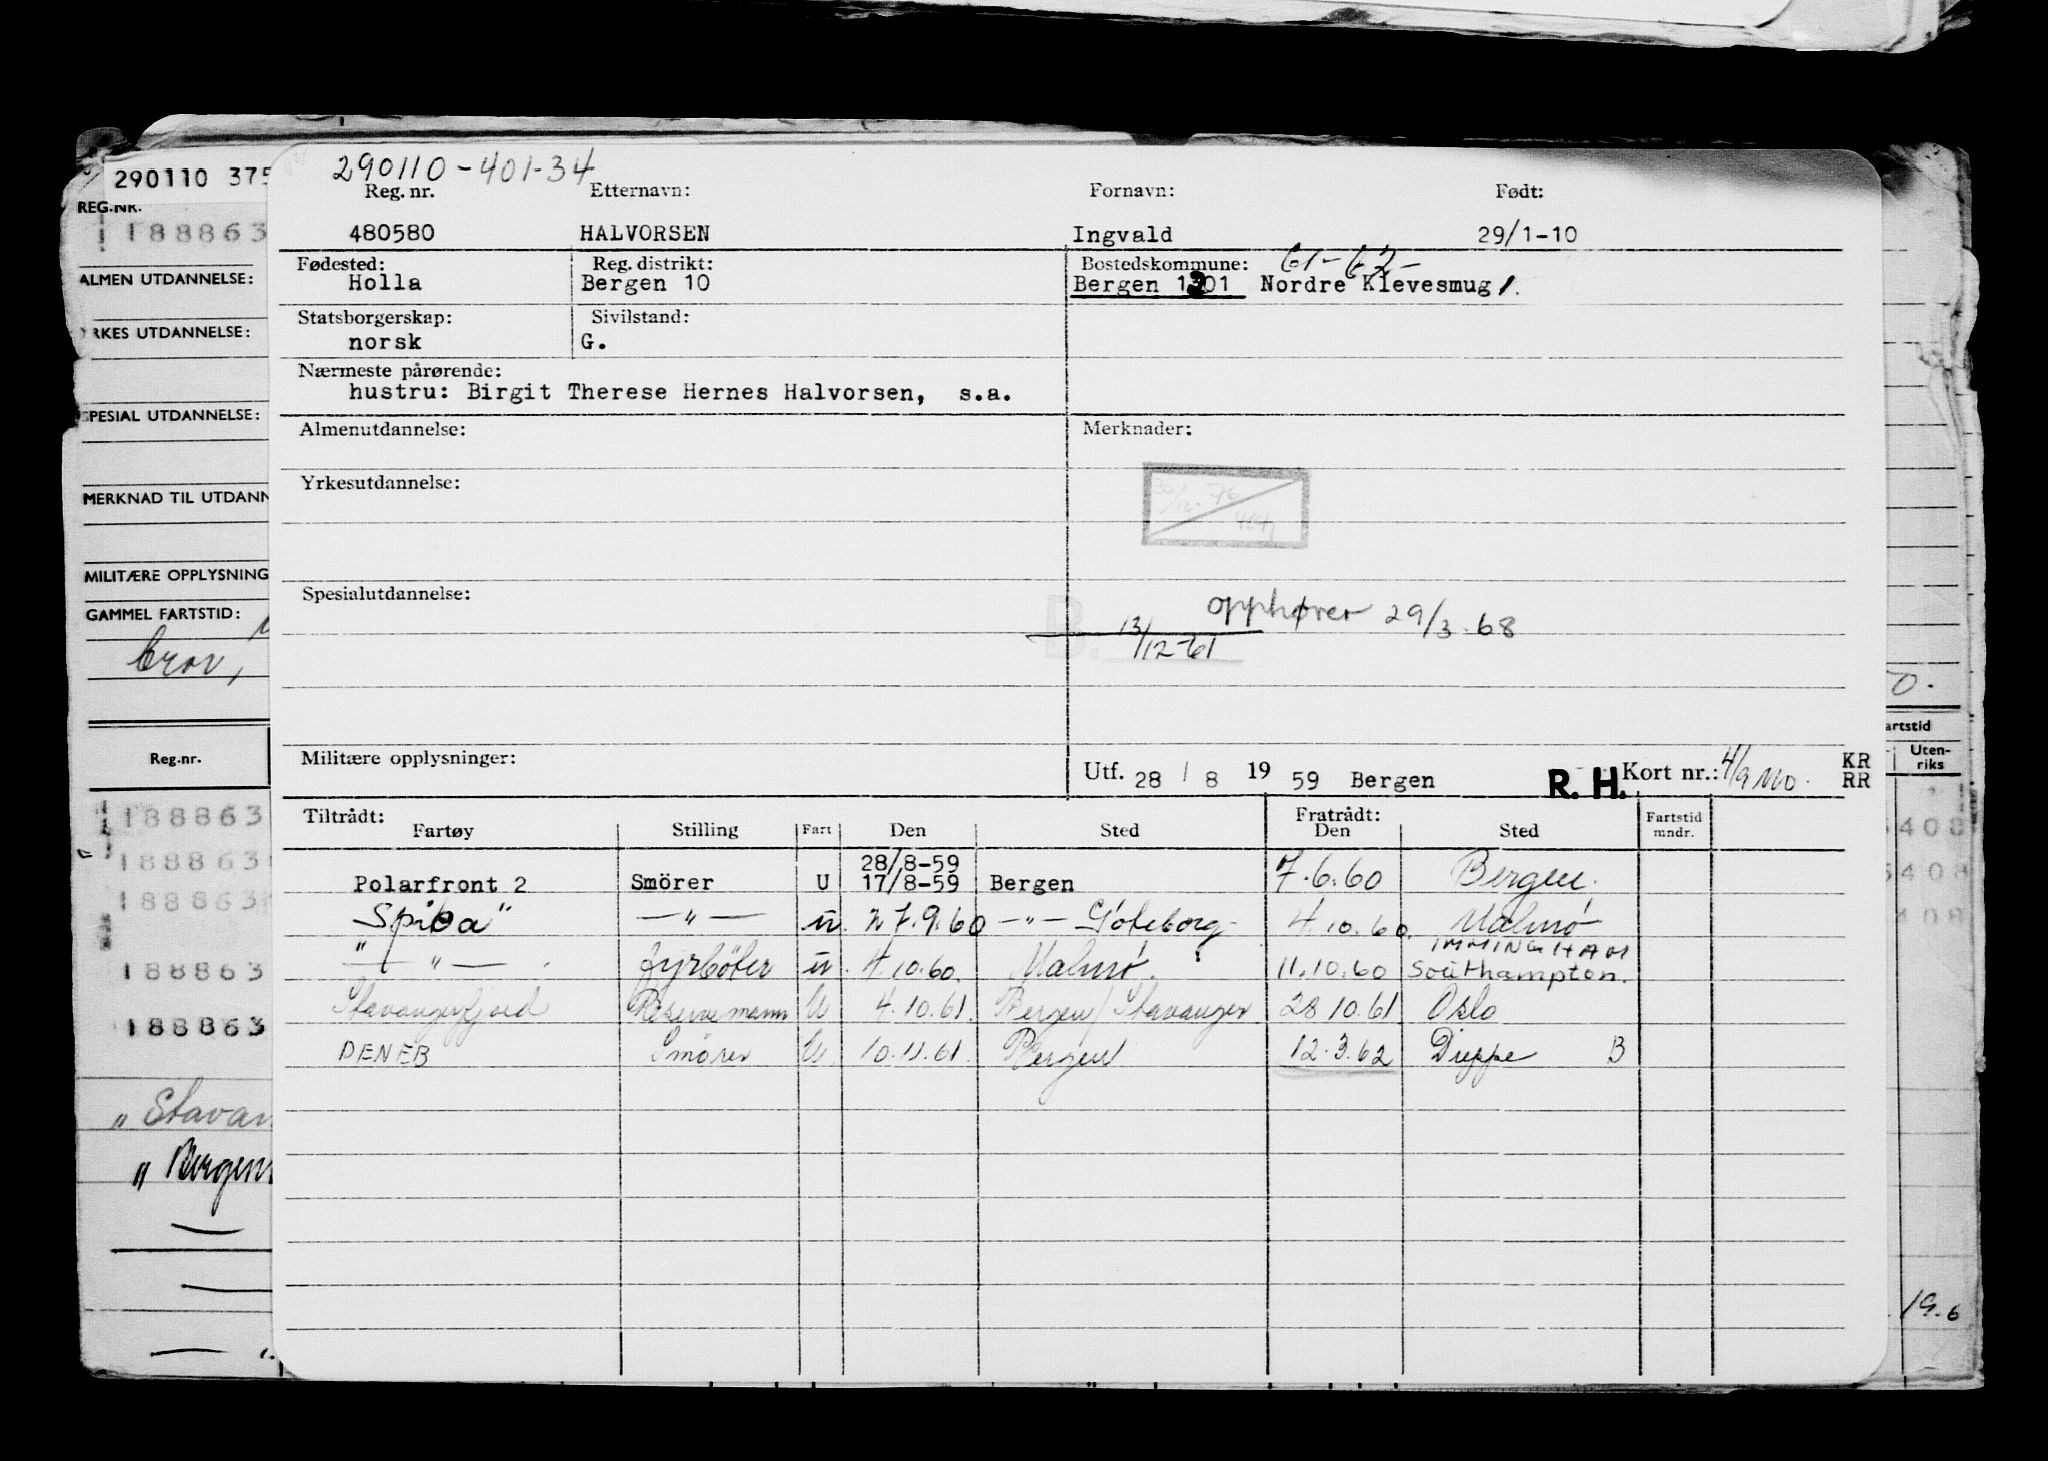 290110 375
290110-401-34
REG.NR.
Reg. nr. Etternavn: Fornavn: Født:
188863
480580 HALVORSEN Ingvald 29/1-10
61-62-
ALMEN UTDANNELSE:
Fødested: Reg. distrikt: Bostedskommune:
Holla Bergen 10 Bergen 1301 Nordre Klevesmug 1.
YRKES UTDANNELSE:
Statsborgerskap: Sivilstand:
norsk G.
Nærmeste pårørende:
hustru: Birgit Therese Hernes Halvorsen, s.a.
SPESIAL UTDANNELSE:
Almenutdannelse: Merknader:
MERKNAD TIL UTDANN
Yrkesutdannelse:
30/12-76
MILITÆRE OPPLYSNING
Spesialutdannelse:
GAMMEL FARTSTID:
opphører 29/3.68
B. 13/12-61
0.
artstid
Reg.nr.
Uten-
riks
Militære opplysninger: Utf. 28 / 8 19 59 Bergen R. H. Kort nr.: KR
RR
Tiltrådt: Fratrådt: Fartstid
Fartøy Stilling Fart Den Sted Den Sted mndr.
188863 408
28/8-59
Polarfront 2 Smörer U 17/8-59 Bergen 7.6.60 Bergen.
188863 408
Spica" —"— u. 27.9.60 —"— Göteborg 4.10.60. Malmö
188863 408
IMMINGHAM
—"— . fyrböter u. 4.10.60. Malmö. ? 11.10.60 Southampton.
188863
Stavangerfjord Reservemann U 4.10.61. Bergen/Stavanger 28 10.61 Oslo
188863
DENEB Smörer U. 10.11.61. Bergen 12.3.62 Dieppe B
" Stavan
" Bergens
19.6